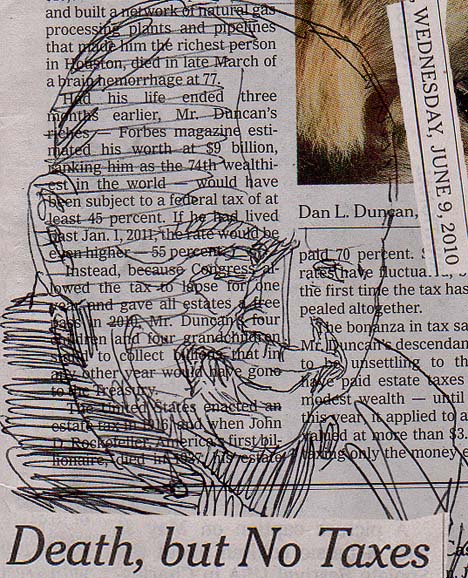 and built a network of natural gas
processing plants and pipelines
that made him the richest person
in Houston, died in late March of
a brain hemorrhage at 77.
Had his life ended three
months earlier, Mr. Duncan's
riches — Forbes magazine esti-
mated his worth at $9 billion,
ranking him as the 74th wealthi-
est in the world — would have
been subject to a federal tax of at
least 45 percent. If he had lived
past Jan. 1, 2011, the rate would be
even higher — 55 percent.
Instead, because Congress al-
lowed the tax to lapse for one
year and gave all estates a free
pass in 2010, Mr. Duncan's four
children and four grandchildren
stand to collect billions that in
any other year would have gone
to the Treasury.
The United States enacted an
estate tax in 1916, and when John
D. Rockefeller, America's first bil-
lionaire, died in 1937, his estate
WEDNESDAY, JUNE 9, 2010
Dan L. Duncan,
paid 70 percent.
rates have fluctua
the first time the tax has
pealed altogether.
The bonanza in tax sa
Mr. Duncan's descendan
to unsettling to th
have paid estate taxes
modest wealth — until
this year, it applied to a
valued at more than $3.
taxing only the money e
Death, but No Taxes